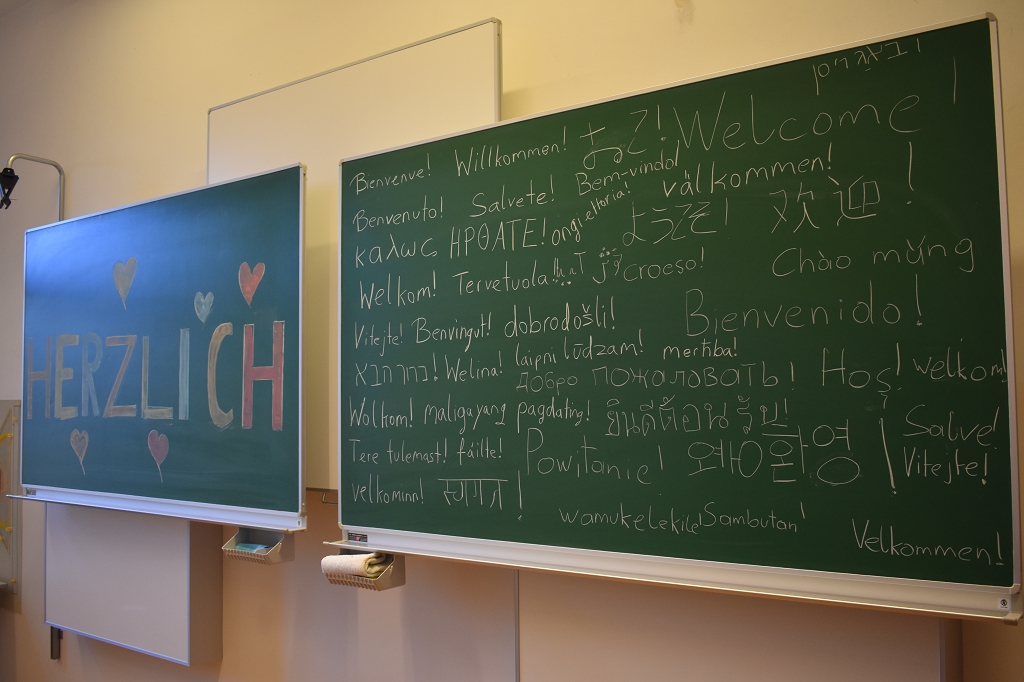 HERZLICH
Bienvenue! Willkommen! Welcome!
Benvenuto! Salvete! Bem-vindo! välkommen!
καλως ΗΡΘΑΤΕ! ongi etorria! ようこそ! 欢迎!
Welkom! Tervetuloa! Croeso! Chào mừng
Vitejte! Benvingut! dobrodošli! Bienvenido!
ברוך הבא! Welina! laipni lūdzam! merħba!
Добро пожаловать! Hoş! welkom!
Wolkom! maligayang pagdating! ยินดีต้อนรับ!
Tere tulemast! fáilte! Powitanie! 환영! Salve!
Vitejte!
velkominn! स्वागत!
wamukelekile! Sambutan!
Velkommen!